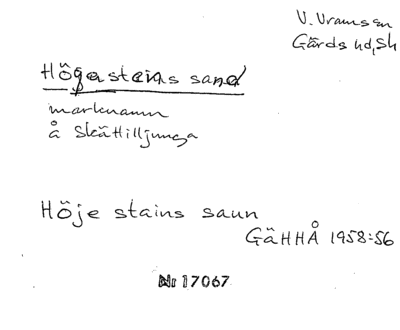 V. Vramssn
Gärds hd, Sk
Högastains sand
marknamn
å Skättilljunga
Höje stains saun
GäHHÅ 1958:56
Nr 17067